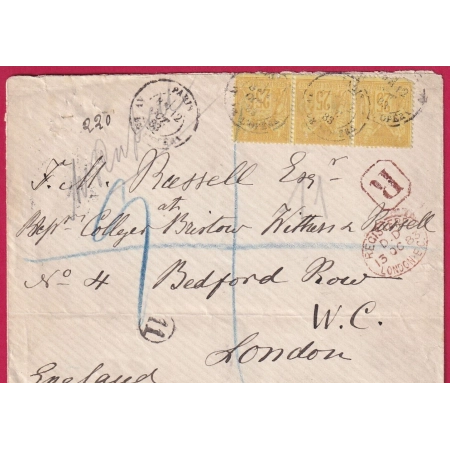 220
PARIS
25 25
R
F. M. Russell Esqr
at
Messrs Collyer Bristow Withers & Russell
REGISTERED
LONDON
No 4 Bedford Row
11
W. C.
London
England